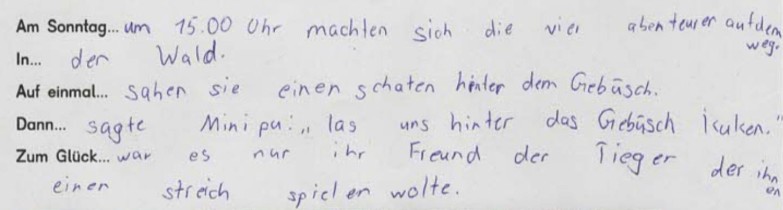 Am Sonntag... um 15.00 Uhr machten sich die vier abenteurer auf dem
weg.
In... der Wald.
Auf einmal... sahen sie einen schaten hinter dem Gebüsch.
Dann... sagte Minipu: „las uns hinter das Gebüsch kuken."
Zum Glück... war es nur ihr Freund der Tieger der ihn
en
einen streich spielen wolte.